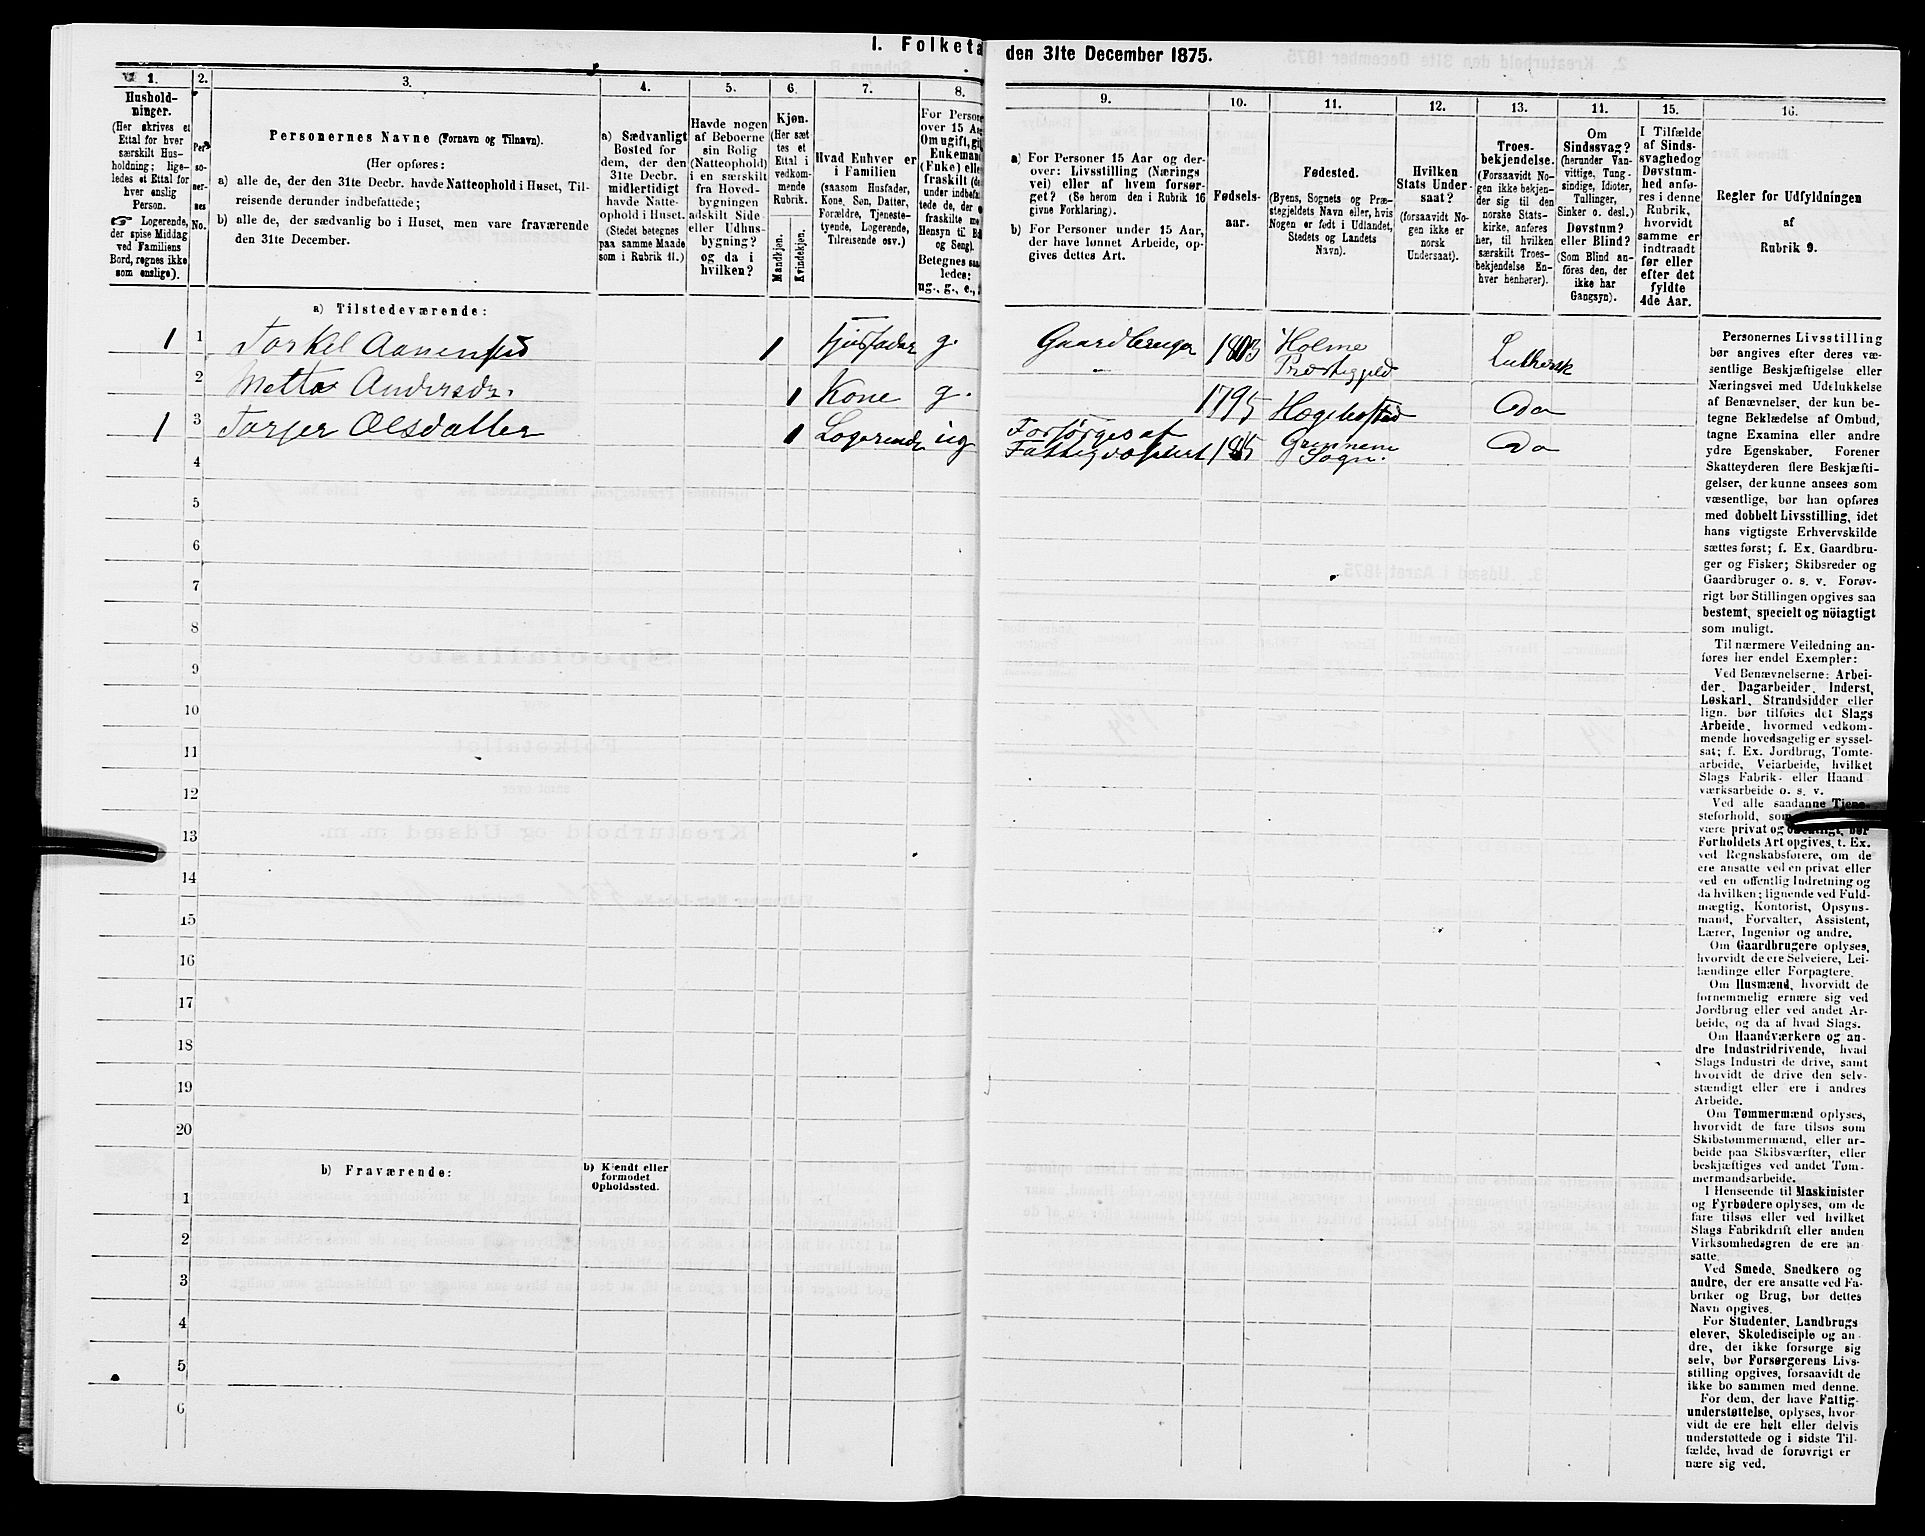 I. Folketa
den 31te December 1875.
1.
2.
3.
4.
5.
6.
7.
8.
9.
10.
11.
12.
13.
11.
15.
16.
Hushold-
ninger.
(Her skrives et
Ettal for hver
særskilt Hus-
holdning; lige-
ledes et Ettal for
hver enslig
Person.
☞ Logerende,
der spise Middag
ved Familiens
Bord, regnes ikke
som enslige).
Per
so-
ner-
nes
No.
Personernes Navne (Fornavn og Tilnavn).
(Her opføres:
a) alle de, der den 31te Decbr. havde Natteophold i Huset, Til-
reisende derunder indbefattede;
b) alle de, der sædvanlig bo i Huset, men vare fraværende
den 31te December.
a) Sædvanligt
Bosted for
dem, der den
31te Decbr.
midlertidigt
havde Natte-
ophold i Huset.
(Stedet betegnes
paa samme Maade
som i Rubrik 11.)
Havde nogen
af Beboerne
sin Bolig
(Natteophold)
i en særskilt
fra Hoved-
bygningen
adskilt Side-
eller Udhus-
bygning?
og da i
hvilken?
Kjøn.
(Her sæt
tes et
Ettal i
vedkom-
mende
Rubrik.
Mandkjøn.
Kvindekjøn.
Hvad Enhver er
i Familien
(saasom Husfader,
Kone, Søn, Datter,
Forældre, Tjeneste-
tyende, Logerende,
Tilreisende osv.)
For Persone
over 15 Aa
Om ugift, gif
Enkeman
(Enke) elle
fraskilt (de
under indbefa
tede de, der e
fraskilte me
Hensyn til Bo
og Seng).
Betegnes saa
ledes:
ug., g., e.,
a) For Personer 15 Aar og der-
over: Livsstilling (Nærings
vei) eller af hvem forsør-
get? (Se herom den i Rubrik 16
givne Forklaring).
b) For Personer under 15 Aar,
der have lønnet Arbeide, op-
gives dettes Art.
Fødsels-
aar.
Fødested.
(Byens, Sognets og Præ-
stegjeldets Navn eller, hvis
Nogen er født i Udlandet,
Stedets og Landets
Navn).
Hvilken
Stats Under-
saat?
(forsaavidt No-
gen ikke er
norsk
Undersaat).
Troes-
bekjendelse.
(Forsaavidt No-
gen ikke bekjen-
der sig til den
norske Stats-
kirke, anføres
her, til hvilken
særskilt Troes-
bekjendelse En-
hver henhører).
Om
Sindssvag?
(herunder Van-
vittige, Tung-
sindige, Idioter,
Tullinger,
Sinker o. desl.)
Døvstum?
eller Blind?
(Som Blind an-
føres den, der
ikke har
Gangsyn).
I Tilfælde
af Sinds-
svaghedog
Døvstum-
hed anfø-
res i denne
Rubrik,
hvorvidt
samme er
indtraadt
før eller
efter det
fyldte
4de Aar.
Regler for Udfyldningen
af
Rubrik 9.
a) Tilstedeværende:
1 1 Torkel Aanensen 1 Husfader g. Gaardbruger 1803 Holme Præstegjeld Luthersk
2 Mette Andersdr. 1 Kone g. 1795 Hægebostad Do
1 3 Torjer Olsdatter 1 Logerende ug Forsørges af Fattigvæsenet 1815 Sogn. Do
4
5
6
7
8
9
10
11
12
13
14
15
16
17
18
19
20
b) Fraværende:
b) Kjendt eller
formodet
Opholdssted.
1
2
3
4
5
6
Personernes Livsstilling
bør angives efter deres væ-
sentlige Beskjæftigelse eller
Næringsvei med Udelukkelse
af Benævnelser, der kun be-
tegne Beklædelse af Ombud,
tagne Examina eller andre
ydre Egenskaber. Forener
Skatteyderen flere Beskjæfti-
gelser, der kunne ansees som
væsentlige, bør han opføres
med dobbelt Livsstilling, idet
hans vigtigste Erhvervskilde
sættes først; f. Ex. Gaardbru-
ger og Fisker; Skibsreder og
Gaardbruger o. s. v. Forøv-
rigt bør Stillingen opgives saa
bestemt, specielt og nöiagtigt
som muligt.
Til nærmere Veiledning an-
føres her endel Exempler:
Ved Benævnelserne: Arbei-
der, Dagarbeider, Inderst,
Løskarl, Strandsidder eller
lign. bør tilføies det Slags
Arbeide, hvormed vedkom-
mende hovedsagelig er syssel-
sat; f. Ex. Jordbrug, Tomte-
arbeide, Veiarbeide, hvilket
Slags Fabrik- eller Haand
værksarbeide o. s. v.
Ved alle saadanne Tjene-
steforhold, som
være privat og offentligt, bør
Forholdets Art opgives, t. Ex.
ved Regnskabsførere, om de
ere ansatte ved en privat eller
ved en offentlig Indretning og
da hvilken; lignende ved Fuld-
mægtig, Kontorist, Opsyns-
mand, Forvalter, Assistent,
Lærer, Ingeniør og andre.
Om Gaardbrugere oplyses,
hvorvidt de ere Selveiere, Lei-
lændinge eller Forpagtere.
Om Husmænd, hvorvidt de
fornemmelig ernære sig ved
Jordbrug eller ved andet Ar-
beide, og da af hvad Slags.
Om Haandværkere og an-
dre Industridrivende, hvad
Slags Industri de drive, samt
hvorvidt de drive den selv-
stændigt eller ere i andres
Arbeide.
Om Tømmermænd oplyses,
hvorvidt de fare tilsøs som
Skibstømmermænd, eller ar-
beide paa Skibsværfter, eller
beskjæftiges ved andet Tøm-
mermandsarbeide.
I Henseende til Maskinister
og Fyrbødere oplyses, om de
fare tilsøs eller ved hvilket
Slags Fabrikdrift eller anden
Virksomhedsgren de ere an-
satte.
Ved Smede, Snedkere og
andre, der ere ansatte ved Fa-
briker og Brug, bør dettes
Navn opgives.
For Studenter, Landbrugs
elever, Skoledisciple og an-
dre, der ikke forsørge sig
selv, bør Forsørgerens Livs-
stilling opgives, forsaavidt de
ikke bo sammen med denne.
For dem, der have Fattig-
understøttelse, oplyses, hvor-
vidt de ere helt eller delvis
understøttede og i sidste Til-
fælde, hvad de forøvrigt er
nære sig ved.